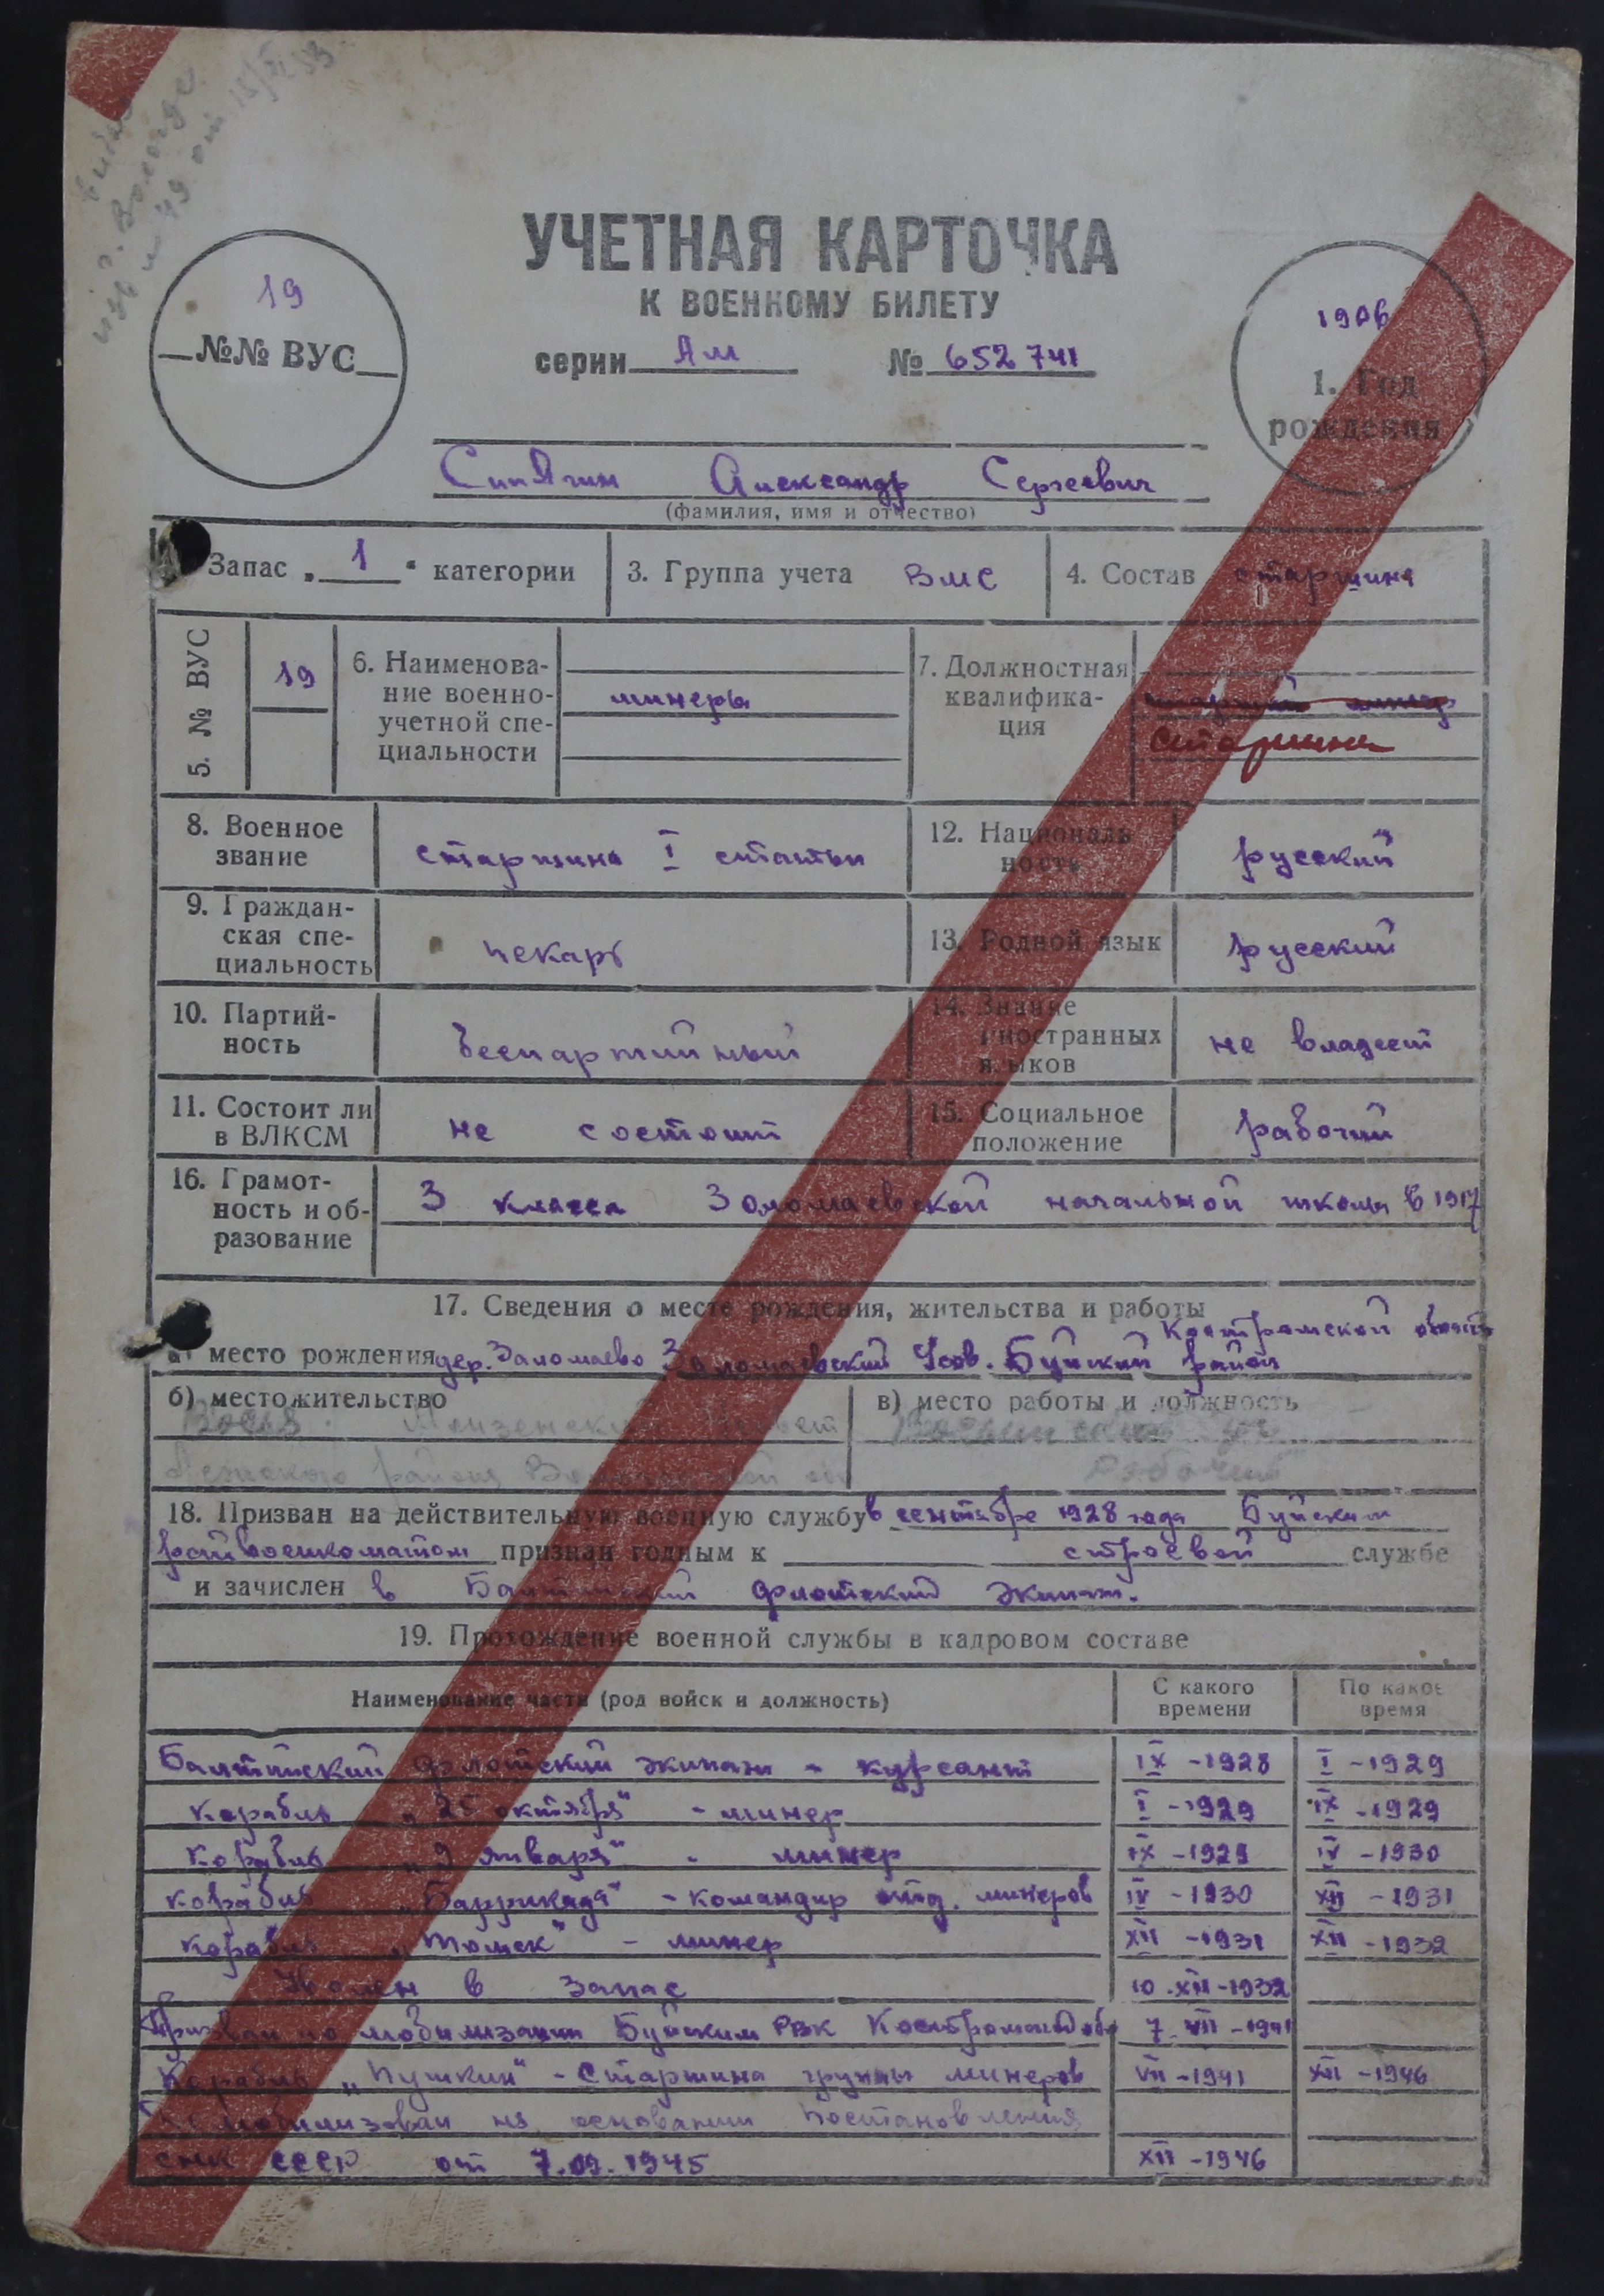 от 18/XI 53
г. Вологде
УЧЕТНАЯ КАРТОЧКА
К ВОЕННОМУ БИЛЕТУ
19
№№ ВУС
серии Ам № 652741
1906
1. Год
рождения
Сипягин Александр Сергеевич
(фамилия, имя и отчество)
Запас „1“ категории
3. Группа учета ВМС
4. Состав старшина
5. № ВУС
19
6. Наименова-
ние военно-
учетной спе-
циальности
минеры
7. Должностная
квалифика-
ция
старший минер
старшина
8. Военное
звание
старшина I статьи
12. Националь
ность
русский
9. Граждан-
ская спе-
циальность
пекарь
13. Родной язык
русский
10. Партий-
ность
беспартийный
14. Знание
иностранных
языков
не владеет
11. Состоит ли
в ВЛКСМ
не состоит
15. Социальное
положение
рабочий
16. Грамот-
ность и об-
разование
3 класса Золомаевской начальной школы в 1917
17. Сведения о месте рождения, жительства и работы
Костромской область
а) место рождения дер. Заломаево Заломаевский с/сов. Буйский район
б) местожительство
в) место работы и должность
района
Рабочий
18. Призван на действительную военную службу в сентябре 1928 года Буйским
райвоенкоматом признан годным к строевой службе
и зачислен в Балтийский флотский экипаж.
19. Прохождение военной службы в кадровом составе
Наименование части (род войск и должность)
С какого
времени
По какое
время
Балтийский флотский экипаж - курсант IX - 1928 I - 1929
корабль „25 октября“ - минер I - 1929 IX - 1929
корабль „9 января“ - минер IX - 1929 IV - 1930
корабль „Баррикада“ - командир отд. минеров IV - 1930 XII - 1931
корабль „Томск“ - минер XII - 1931 XII - 1932
Уволен в запас 10.XII-1932
Призван по мобилизации Буйским РВК Костромской обл 7.VII-1941
Корабль „Пушкин“ - Старшина группы минеров VII - 1941 XII - 1946
Демобилизован на основании Постановления
СНК СССР от 7.09.1945 XII - 1946